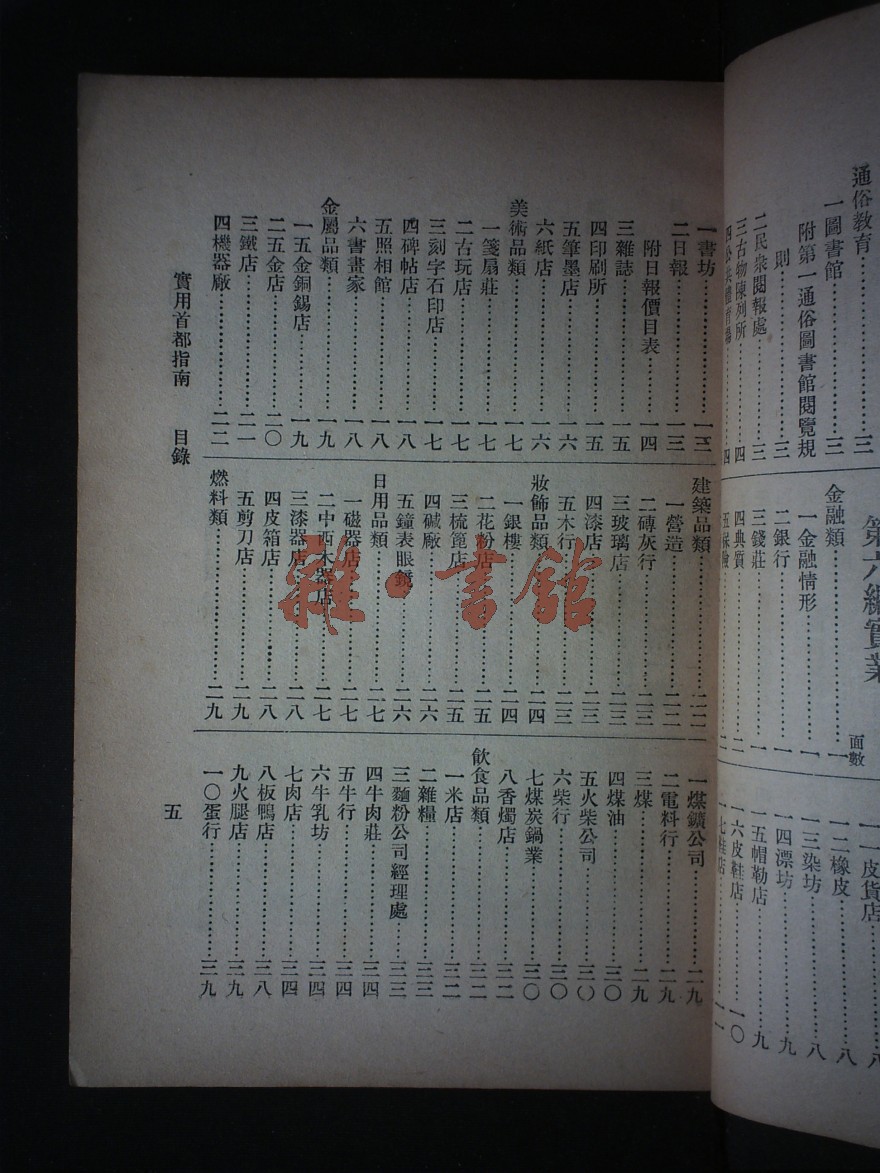 通俗教育……三
一圖書館……三
附第一通俗圖書館閱覽規
則……三
二民衆閱報處……三
三古物陳列所……四
四公共體育場……四
第六編實業
面數
金融類……一
一金融情形……一
二銀行……一
三錢莊……一
四典質……二
五保險……二
一一皮貨店……八
一二橡皮……八
一三染坊……八
一四漂坊……九
一五帽勒店……九
一六皮鞋店……一〇
一七鞋店……一一
一書坊……一三
二日報……一三
附日報價目表……一四
三雜誌……一五
四印刷所……一五
五筆墨店……一六
六紙店……一六
美術品類……一七
一箋扇莊……一七
二古玩店……一七
三刻字石印店……一七
四碑帖店……一八
五照相館……一八
六書畫家……一八
金屬品類……一九
一五金銅錫店……一九
二五金店……二〇
三鐵店……二一
四機器廠……二二
建築品類……二二
一營造……二二
二磚灰行……二三
三玻璃店……二三
四漆店……二三
五木行……二三
妝飾品類……二四
一銀樓……二四
二花粉店……二五
三梳篦店……二五
四碱廠……二六
五鐘表眼鏡……二六
日用品類……二七
一磁器店……二七
二中西木器店……二七
三漆器店……二八
四皮箱店……二八
五剪刀店……二九
燃料類……二九
一煤鑛公司……二九
二電料行……二九
三煤……二九
四煤油……三〇
五火柴公司……三〇
六柴行……三〇
七煤炭鍋業……三〇
八香燭店……三二
飲食品類……三二
一米店……三二
二雜糧……三三
三麵粉公司經理處……三三
四牛肉莊……三四
五牛行……三四
六牛乳坊……三四
七肉店……三四
八板鴨店……三八
九火腿店……三九
一〇蛋行……三九
實用首都指南 目錄 五
雜·書館